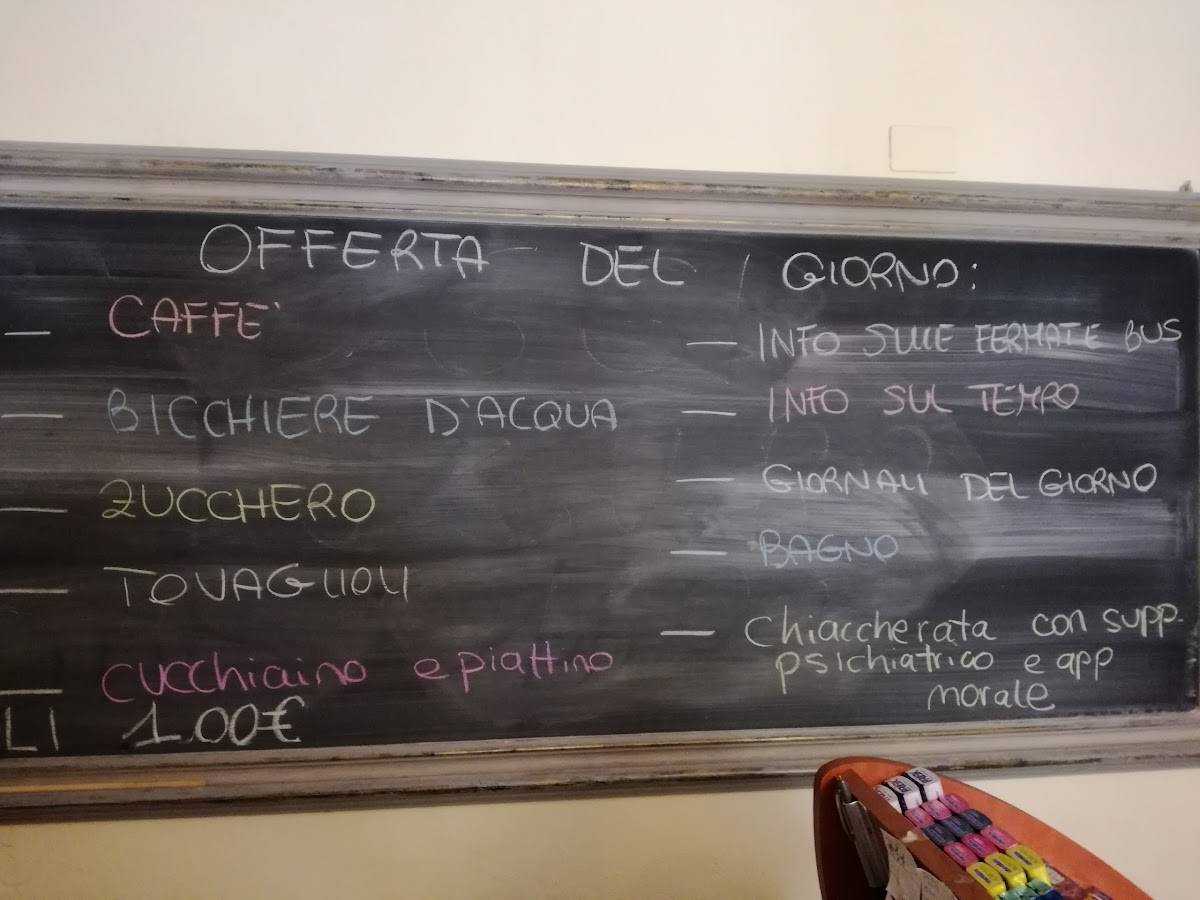 OFFERTA DEL GIORNO:
— CAFFE'
— BICCHIERE D'ACQUA
— ZUCCHERO
— TOVAGLIOLI
— cucchiaino e piattino
LI 1.00€
— INFO SULLE FERMATE BUS
— INFO SUL TEMPO
— GIORNALI DEL GIORNO
— BAGNO
— Chiaccherata con supp.
psichiatrico e app
morale